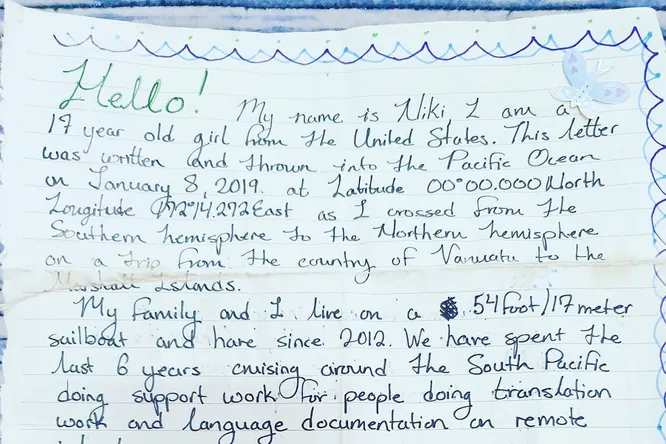 Hello! My name is Niki I am a
17 year old girl from the United States. This letter
was written and thrown into the Pacific Ocean
on January 8, 2019. at Latitude 00°00.000 North
Longitude 172°14.272 East as I crossed from the
Southern hemisphere to the Northern hemisphere
on a trip from the country of Vanuatu to the
Marshall Islands.
My family and I live on a 54 foot/17 meter
sailboat and have since 2012. We have spent the
last 6 years cruising around the South Pacific
doing support work for people doing translation
work and language documentation on remote